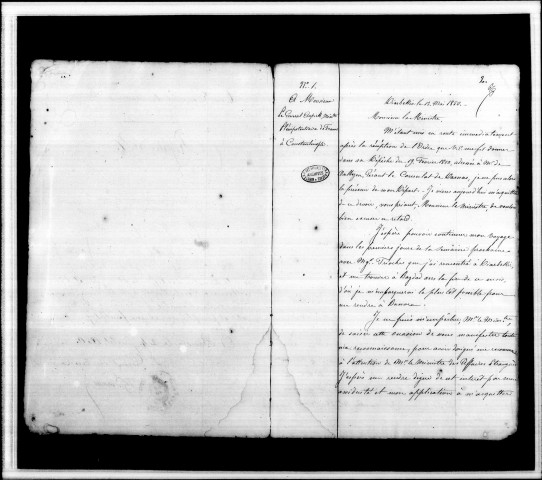 N.º 1.
A Monsieur
Le Général Aupick, Ministre
Plénipotentiaire de France
à Constantinople
2.
Diarbékir le 12 Mai 1850.
Monsieur le Ministre,
M'étant mis en route
après la réception de l'ordre que V.E. me fit donner
dans sa dépêche du 19 Février 1850, adressée à Mr. de
Gérant le Consulat de je n'ai pu
le prévenir de mon départ. Je viens aujourd'hui m'acquitter
de ce devoir, vous priant, Monsieur le Ministre, de vouloir
bien excuser ce retard.
J'espère pouvoir continuer mon voyage
dans les premiers jours de la semaine prochaine
avec Mgr. Trioche que j'ai rencontré à Diarbékir,
et me trouver à Bagdad vers la fin de ce mois,
d'où je m'empresserai le plus tôt possible pour
me rendre à
Je ne puis m'empêcher, Mr. le Ministre,
de saisir cette occasion de vous manifester toute
ma reconnaissance, pour avoir daigné me
à l'attention de Mr. le Ministre des Affaires Etrangères.
J'espère me rendre digne de cet intérêt par mon
assiduité et mon application à m'acquitter